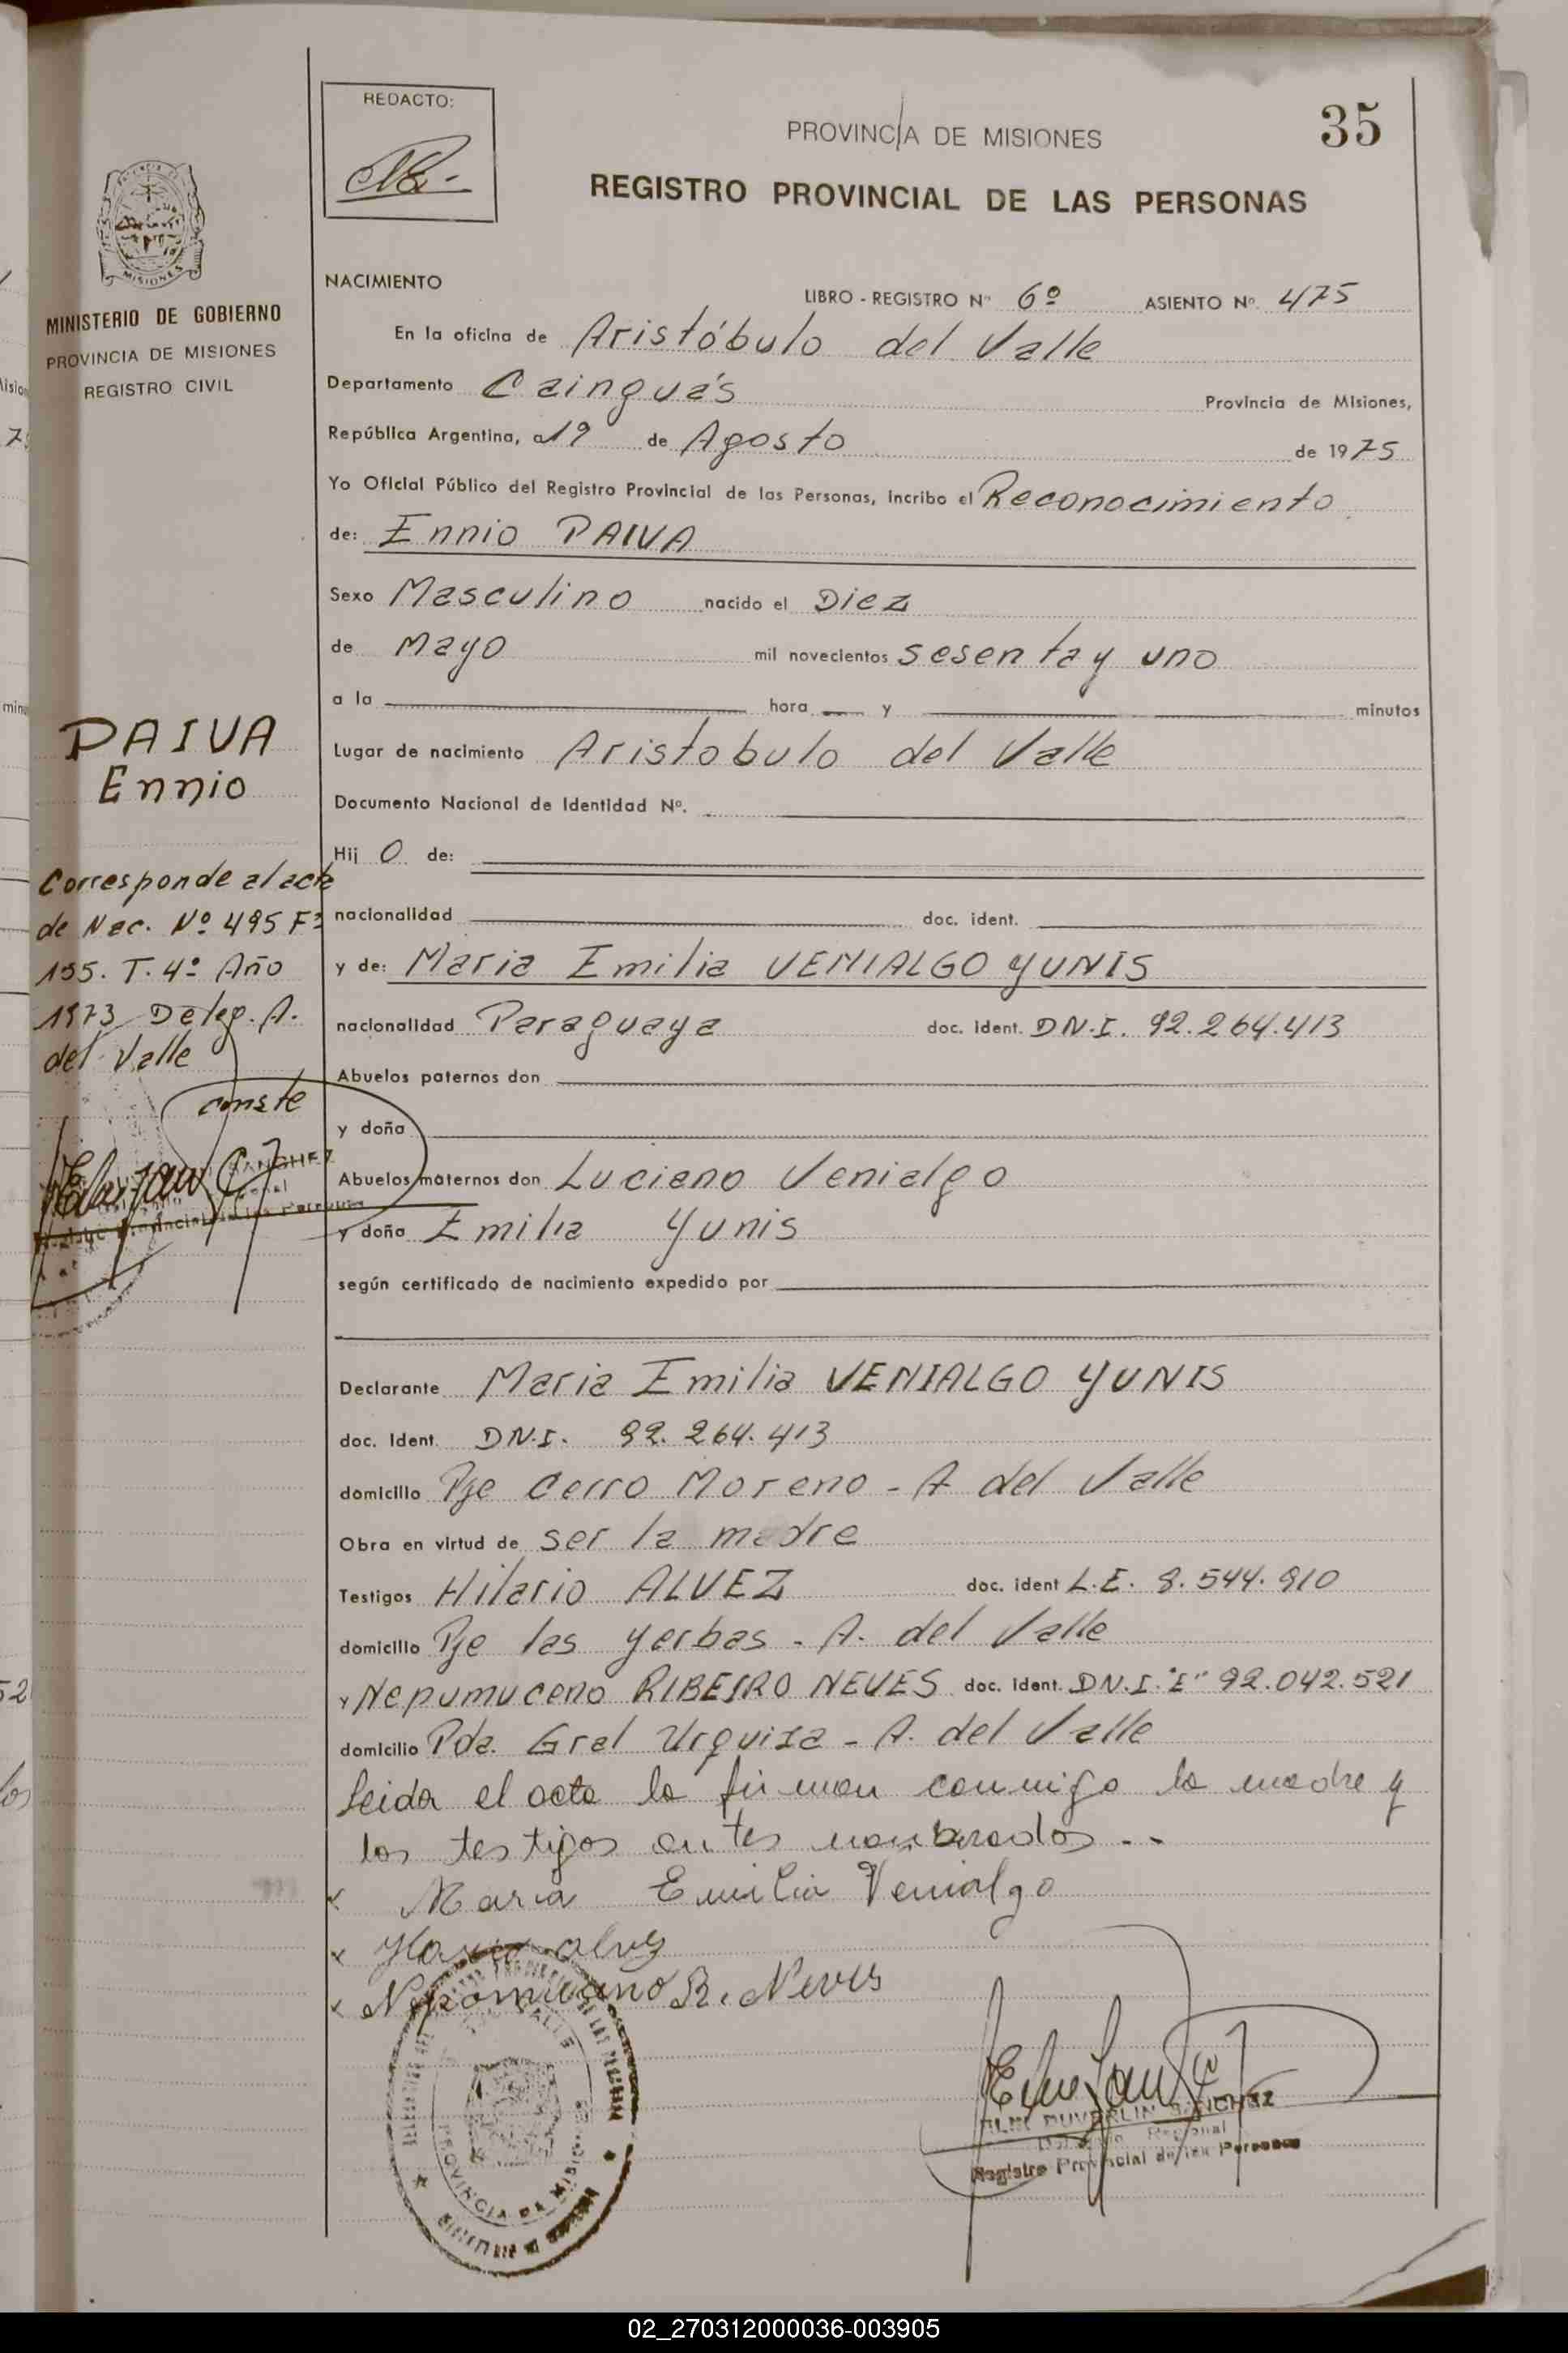 REDACTO:
35
PROVINCIA DE MISIONES
REGISTRO PROVINCIAL DE LAS PERSONAS
MISIONES
MINISTERIO DE GOBIERNO
PROVINCIA DE MISIONES
REGISTRO CIVIL
NACIMIENTO
LIBRO - REGISTRO Nº 6º ASIENTO Nº 475
En la oficina de Aristóbulo del Valle
Departamento Cainguás Provincia de Misiones,
República Argentina, a 19 de Agosto de 1975
Yo Oficial Público del Registro Provincial de las Personas, incribo el Reconocimiento
de: Ennio PAIVA
Sexo Masculino nacido el Diez
de Mayo mil novecientos sesenta y uno
a la hora y minutos
Lugar de nacimiento Aristobulo del Valle
Documento Nacional de Identidad Nº.
Hij o de:
nacionalidad doc. ident.
y de: Maria Emilia VENIALGO YUNIS
nacionalidad Paraguaya doc. ident. DN.I. 92.264.413
Abuelos paternos don
y doña
Abuelos maternos don Luciano Venialgo
y doña Emilia Yunis
según certificado de nacimiento expedido por
Declarante Maria Emilia VENIALGO YUNIS
doc. Ident. DN.I. 92.264.413
domicilio Pje Cerro Moreno - A del Valle
Obra en virtud de ser la madre
Testigos Hilario ALVEZ doc. ident L.E. 8.544.910
domicilio Pje las yerbas - A. del Valle
y Nepumuceno RIBEIRO NEVES doc. ident. DN.I. "E" 92.042.521
domicilio Pda. Gral Urquiza - A. del Valle
Leida el acta la firman conmigo la madre y
los testigos antes nombrados --
x Maria Emilia Venialgo
x alves
x Nepomuceno R. Neves
PAIVA
Ennio
Corresponde al acta
de Nac. Nº 495 Fº
195. T. 4º Año
1973 Deleg. A.
del Valle
conste
SANCHEZ
PROVINCIA DE MISIONES
DUVERLIN SANCHEZ
Registro Provincial de las Personas
02_270312000036-003905